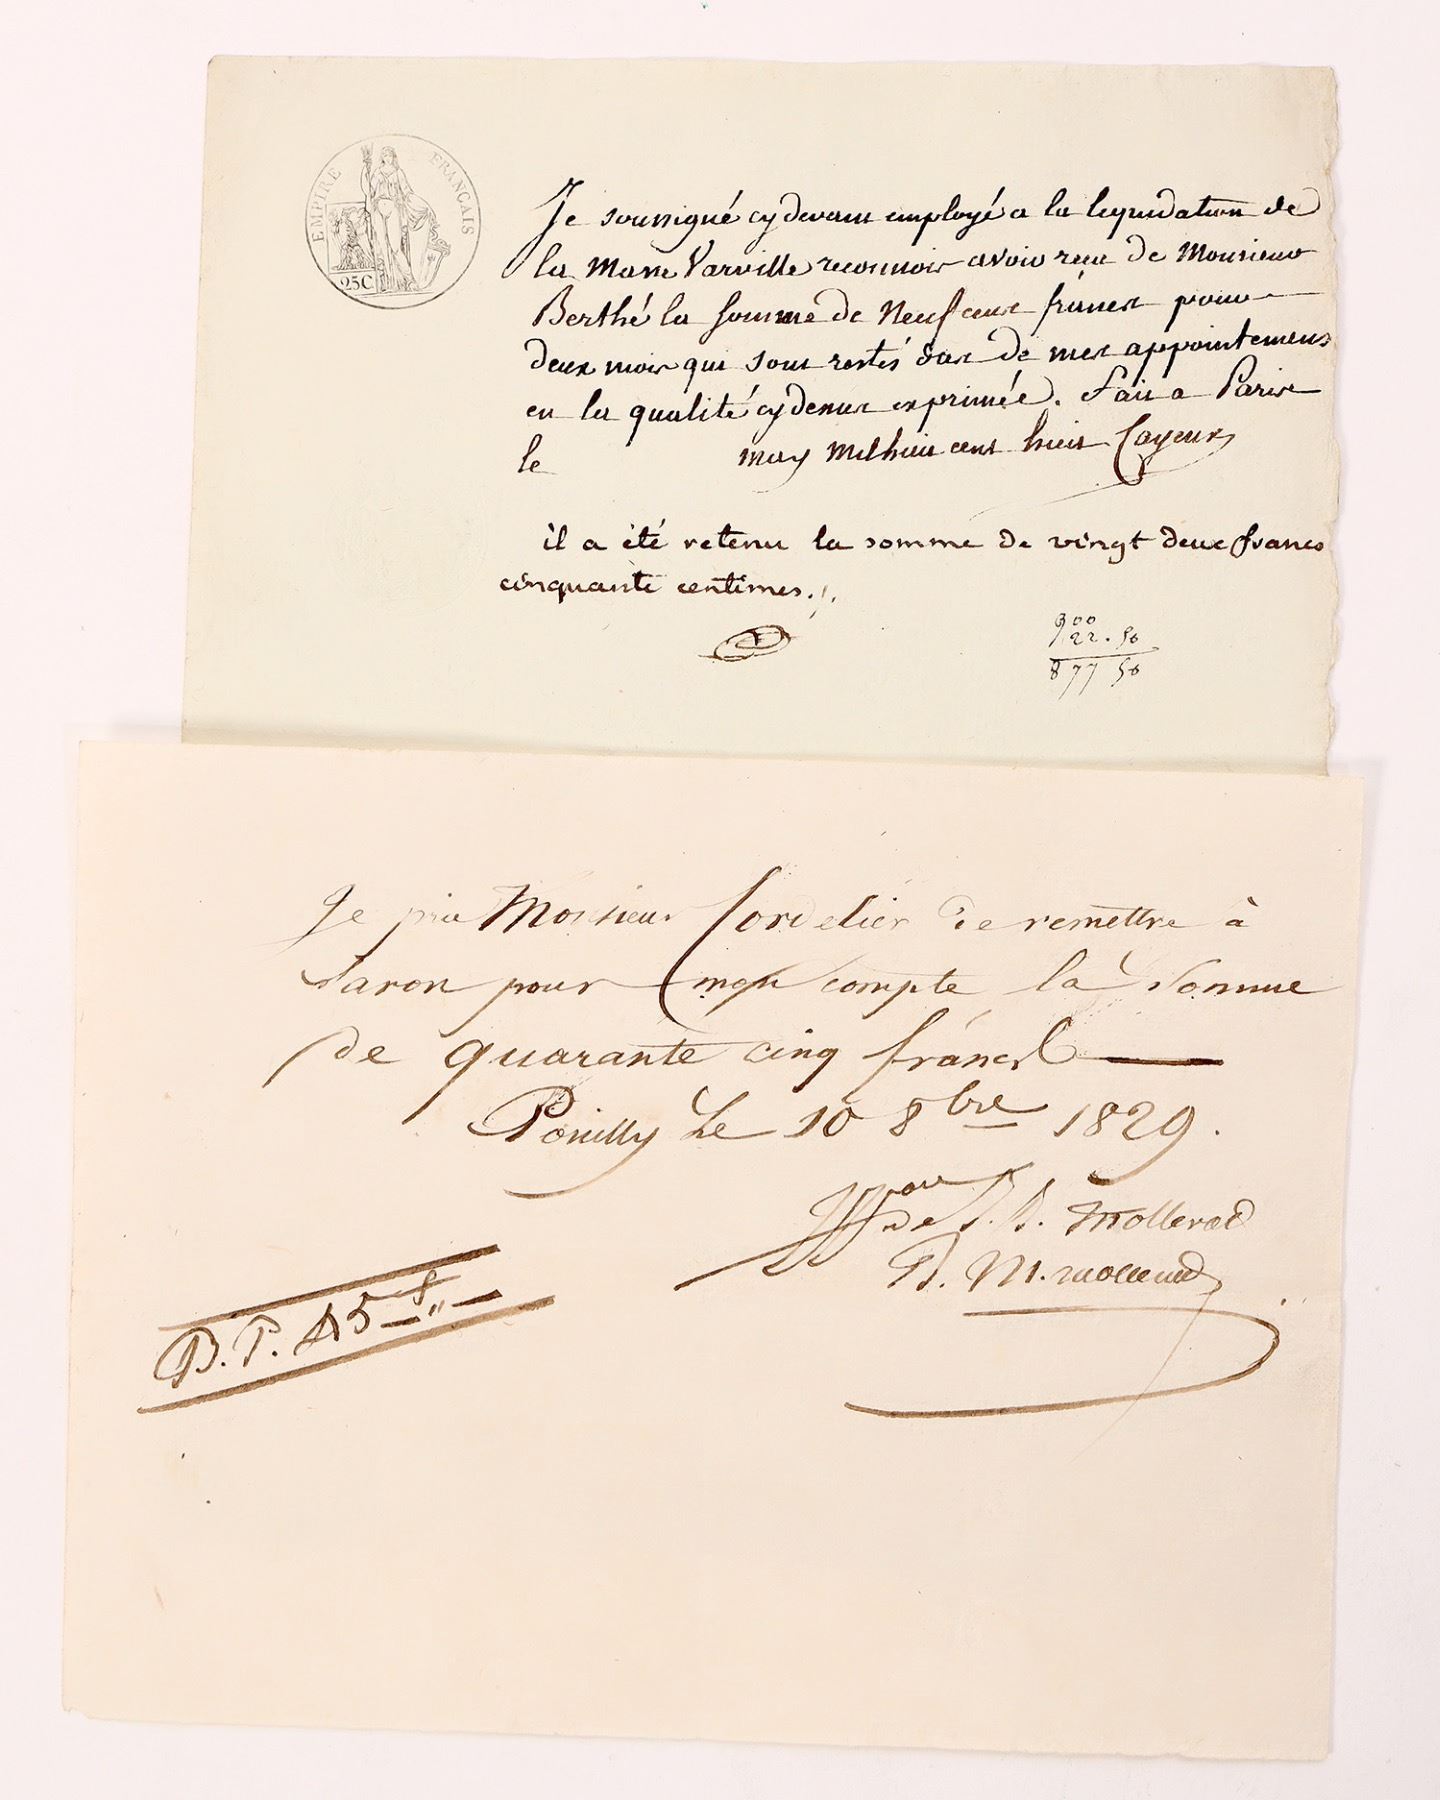 EMPIRE FRANÇAIS
25C
Je soussigné cy devant employé a la lequidation de
la Masse Varville reconnois avoir recu de Monsieur
Berthé la somme de Neuf cent francs pour
deux mois qui sont restés dus de mes appointemens
en la qualité cy dessus exprimée. fait a Paris
le may mil huit cent huit Cayeux
il a été retenu la somme de vingt deux francs
cinquante centimes.
900
22.50
877 50
Je prie Monsieur Cordelier de remettre à
Savon pour mon compte la Somme
de quarante cinq francs
Pouilly Le 10 8bre 1829.
de J. B. Mollerat
B. M. Mollerat
B. P. 45 f "